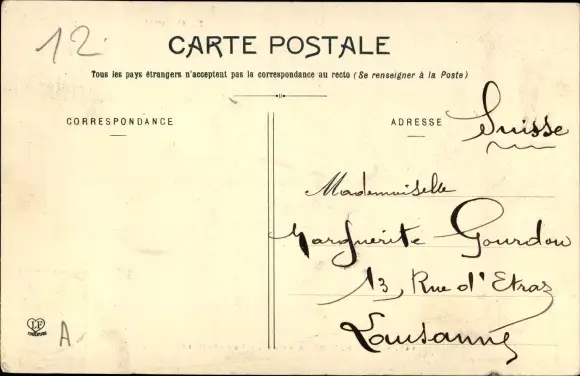 12.
CARTE POSTALE
Tous les pays étrangers n'acceptent pas la correspondance au recto (Se renseigner à la Poste)
CORRESPONDANCE
ADRESSE
Suisse
Mademoiselle
Marguerite Gourdou
13, Rue d'Etraz
Lausanne
A